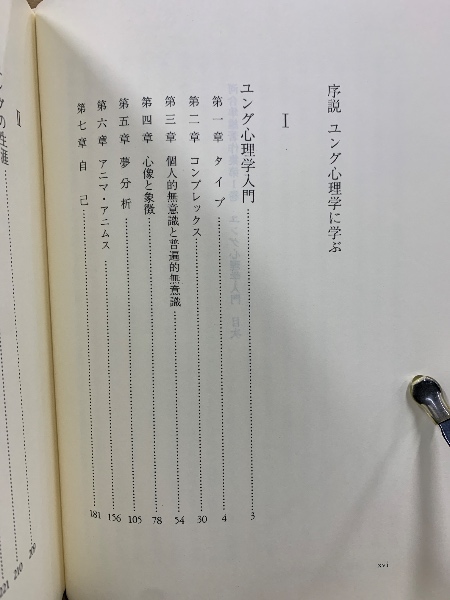 序説 ユング心理学に学ぶ
I
ユング心理学入門 3
第一章 タイプ 4
第二章 コンプレックス 30
第三章 個人的無意識と普遍的無意識 54
第四章 心像と象徴 78
第五章 夢分析 105
第六章 アニマ・アニムス 156
第七章 自己 181
xvi
II
の生涯
210